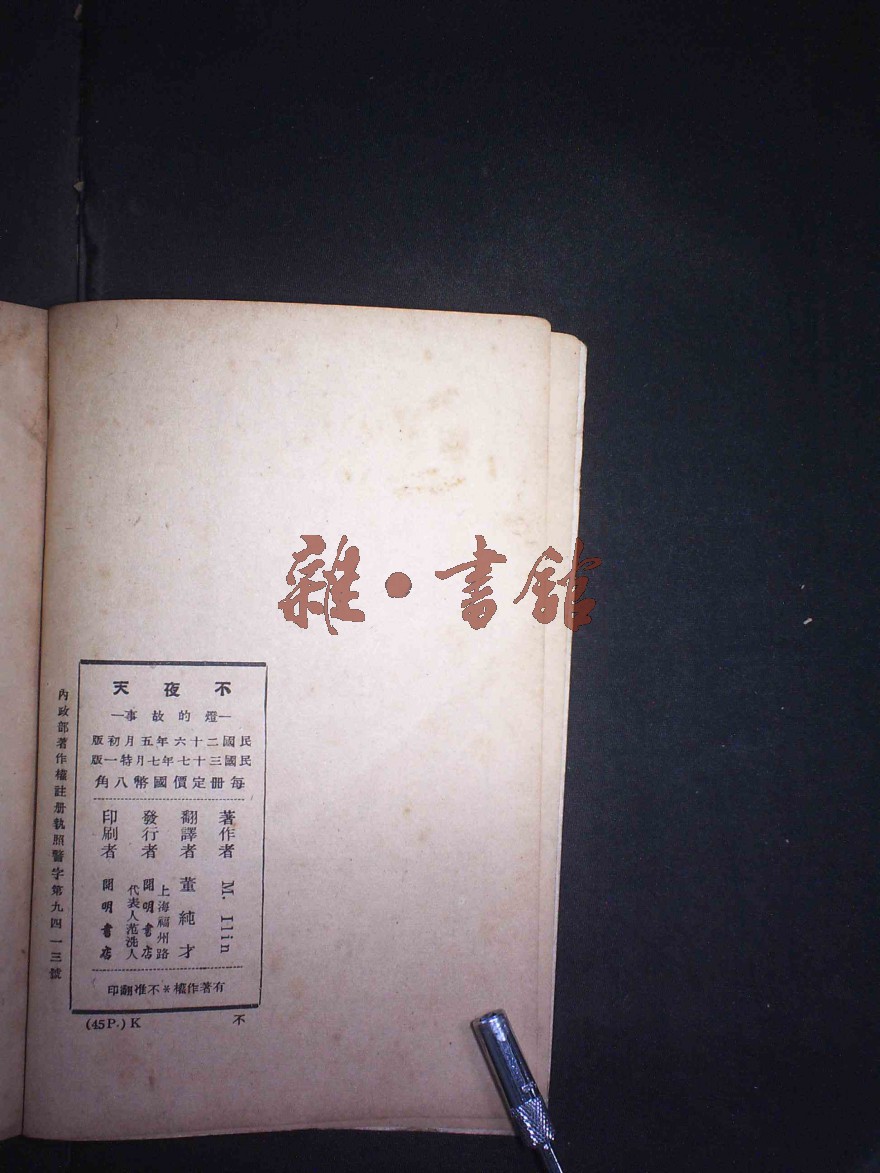 雜·書館
不夜天
—燈的故事—
民國二十六年五月初版
民國三十七年七月特一版
每册定價國幣八角
著作者 M. Ilin
翻譯者 董純才
發行者 上海福州路
開明書店
代表人范洗人
印刷者 開明書店
有著作權＊不准翻印
內政部著作權註册執照警字第九四一三號
(45P.) K 不